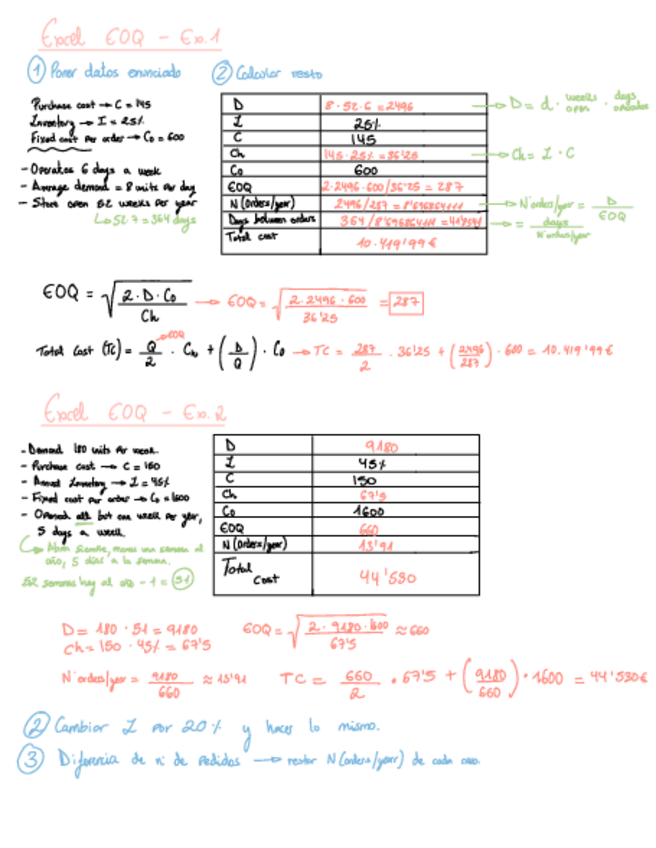 Excel EOQ - Ex.1
① Poner datos enunciado ② Calcular resto
Purchase cost → C = 145
Inventory → I = 25%
Fixed cost per order → Co = 600
- Operates 6 days a week
- Average demand = 8 units per day
- Store open 52 weeks per year
↳ 52·7 = 364 days
D 8·52·6 = 2496 → D = d · weeks open · days
I 25%
C 145
Ch 145·25% = 36'25 → Ch = I · C
Co 600
EOQ 2·2496·600/36'25 = 287
N (orders/year) 2496/287 = 8'696864111 → Nº orders/year = D / EOQ
Days between orders 364/8'696864111 = → = days / Nº orders/year
Total cost 10.419'99€
EOQ = √(2·D·Co / Ch) → EOQ = √(2·2496·600 / 36'25) = 287
Total Cost (TC) = Q/2 · Ch + (D/Q) · Co → TC = 287/2 · 36'25 + (2496/287) · 600 = 10.419'99€
EOQ
Excel EOQ - Ex.2
- Demand 180 units per week.
- Purchase cost → C = 150
- Annual Inventory → I = 45%
- Fixed cost per order → Co = 1600
- Opened all but one week per year,
5 days a week.
↳ Abren siempre, menos una semana al
año, 5 días a la semana.
52 semanas hay al año - 1 = 51
D 9180
I 45%
C 150
Ch 67'5
Co 1600
EOQ 660
N (Orders/year) 13'91
Total Cost 44'530
D = 180 · 51 = 9180
Ch = 150 · 45% = 67'5
EOQ = √(2·9180·1600 / 67'5) ≈ 660
Nº orders/year = 9180/660 ≈ 13'91 TC = 660/2 · 67'5 + (9180/660) · 1600 = 44'530€
② Cambiar I por 20% y haces lo mismo.
③ Diferencia de nº de pedidos → restar N (orders/year) de cada caso.